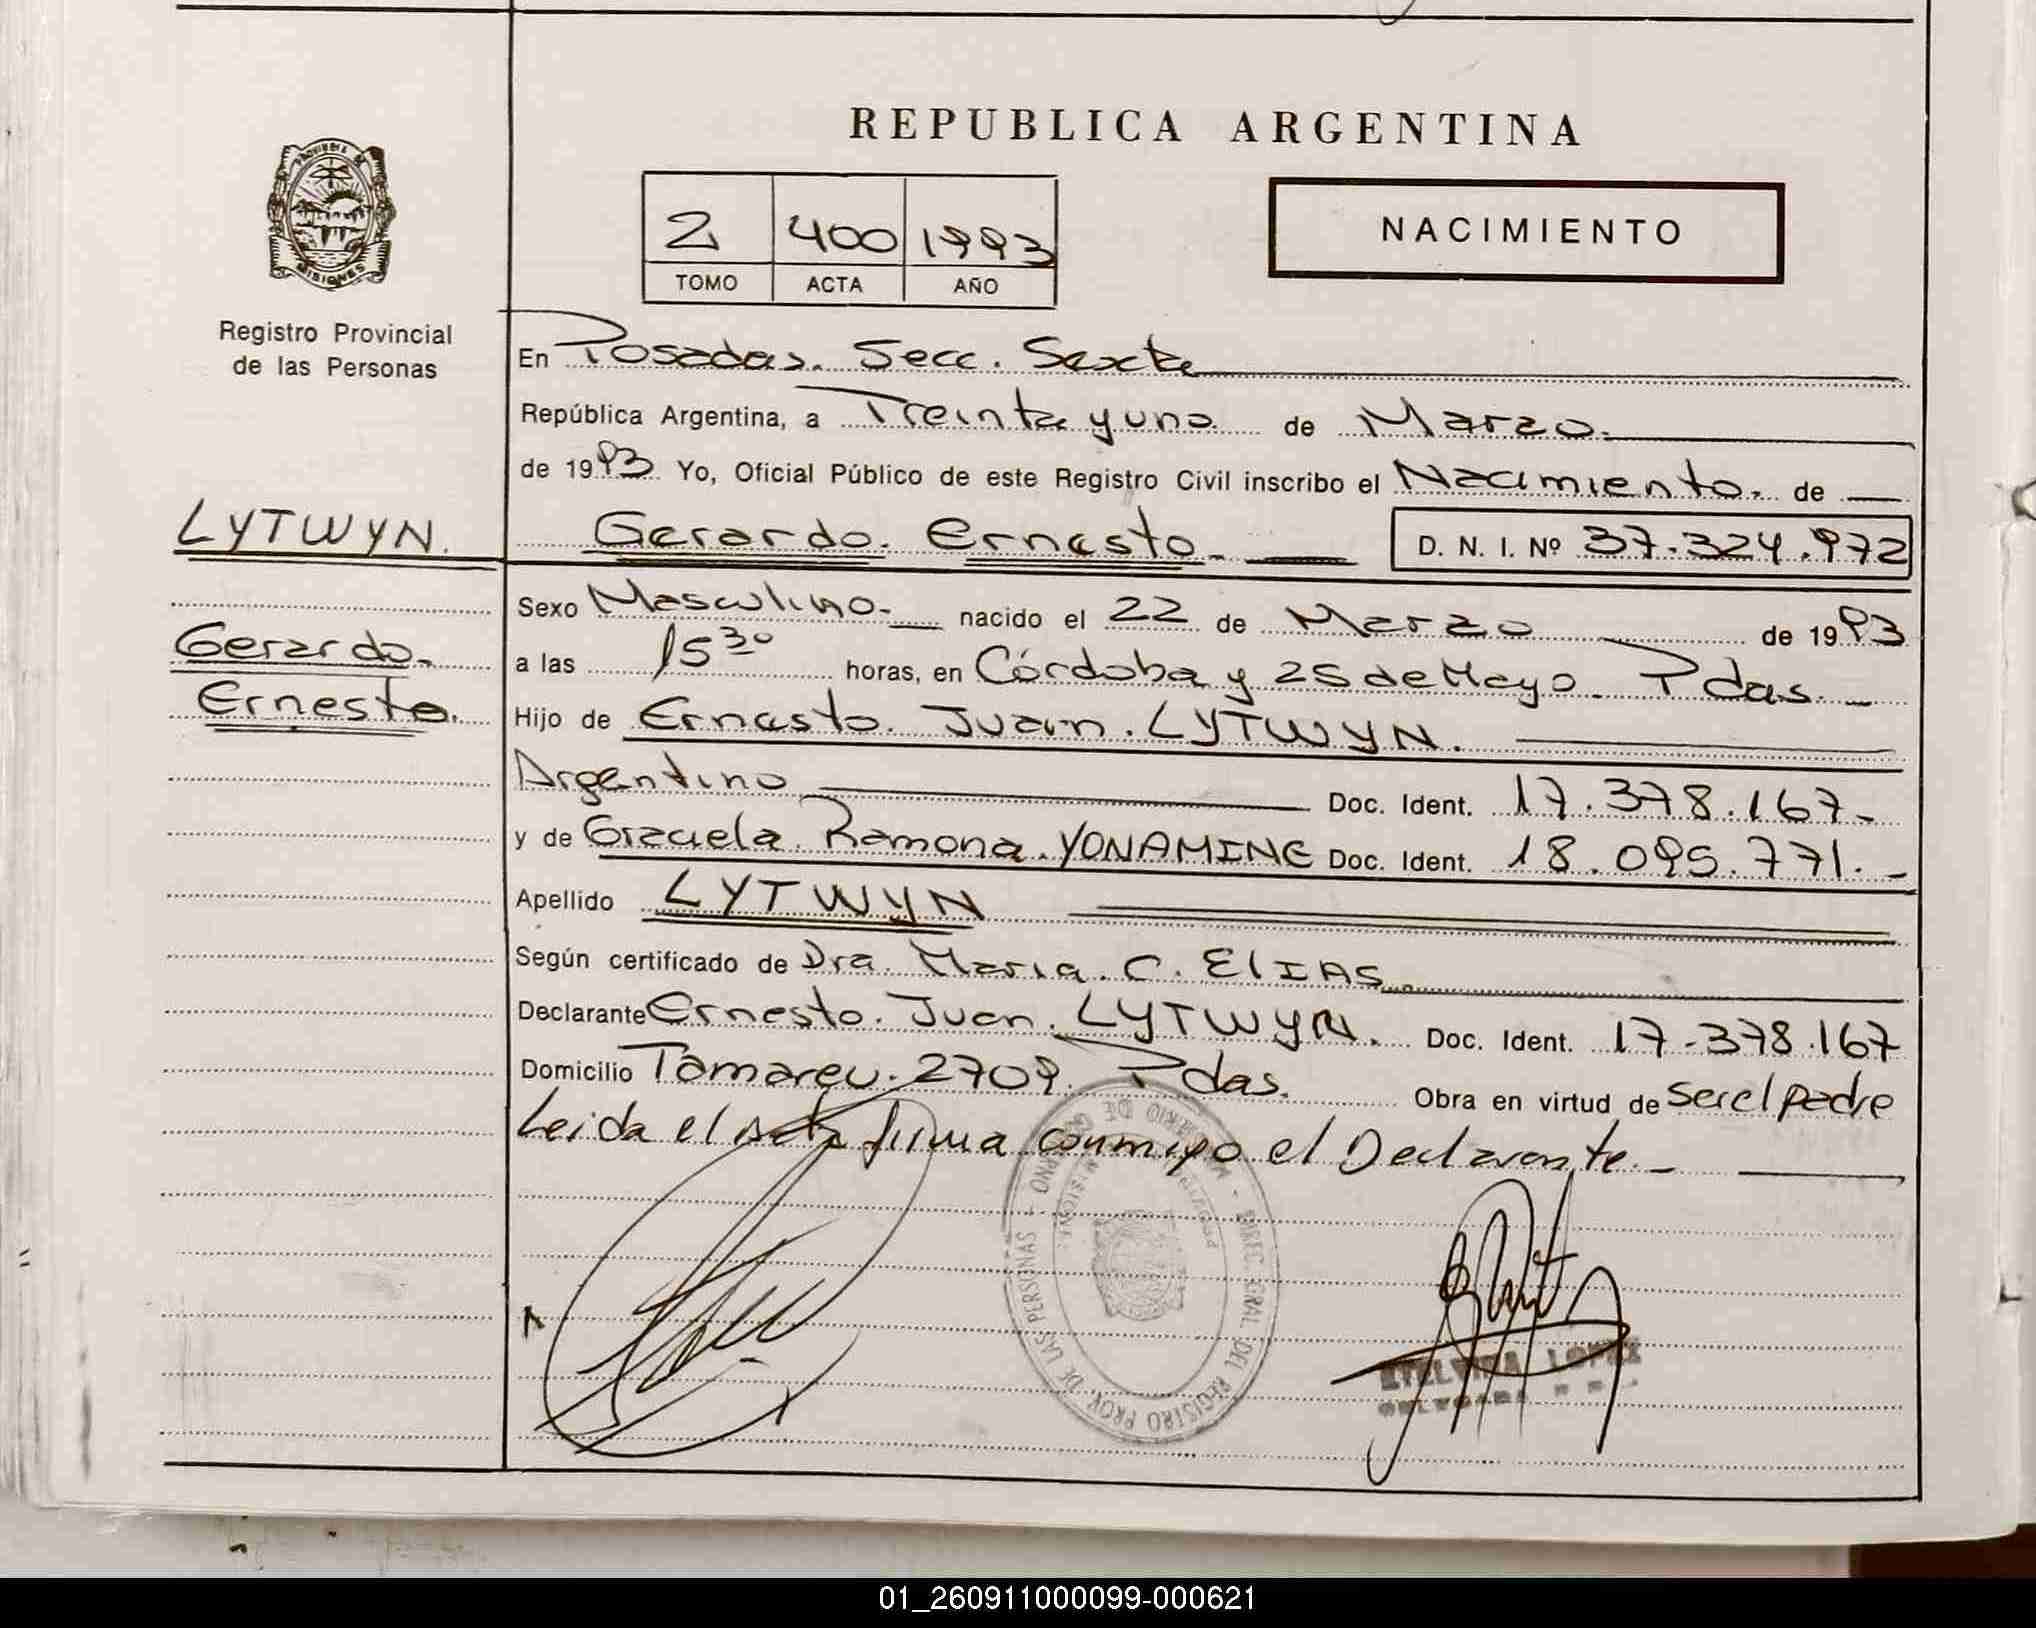 REPUBLICA ARGENTINA
PROVINCIA DE
MISIONES
Registro Provincial
de las Personas
2 400 1993
TOMO ACTA AÑO
NACIMIENTO
En Posadas. Secc. Sexta
República Argentina, a Treinta y uno de Marzo.
de 1993 Yo, Oficial Público de este Registro Civil inscribo el Nacimiento. de
LYTWYN.
Gerardo. Ernesto. D. N. I. Nº 37.324.972
Gerardo.
Ernesto.
Sexo Masculino. nacido el 22 de Marzo de 1993
a las 15 30 horas, en Córdoba y 25 de Mayo. Pdas.
Hijo de Ernesto. Juan. LYTWYN.
Argentino Doc. Ident. 17.378.167-
y de Graciela. Ramona. YONAMINE Doc. Ident. 18.095.771.-
Apellido LYTWYN
Según certificado de Dra. Maria. C. ELIAS.
Declarante Ernesto. Juan. LYTWYN. Doc. Ident. 17-378.167
Domicilio Tamareu. 2709. Pdas. Obra en virtud de ser el padre
Leida el Acta firma conmigo el Declarante.-
DIREC. GRAL. DEL REGISTRO PROV. DE LAS PERSONAS
ETELVINA LOPEZ
01_260911000099-000621